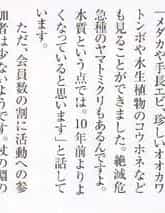 メダカや手長エビ、珍しいオオカワ
トンボや水生植物のコウホネなど
も見ることができました。絶滅危
急種のヤマトミクリもあるんですよ。
水質という点では。10年前より
なくなっていると思います」と話して
います。
ただ、会員数の割に活動への参
加者は少ないようです。